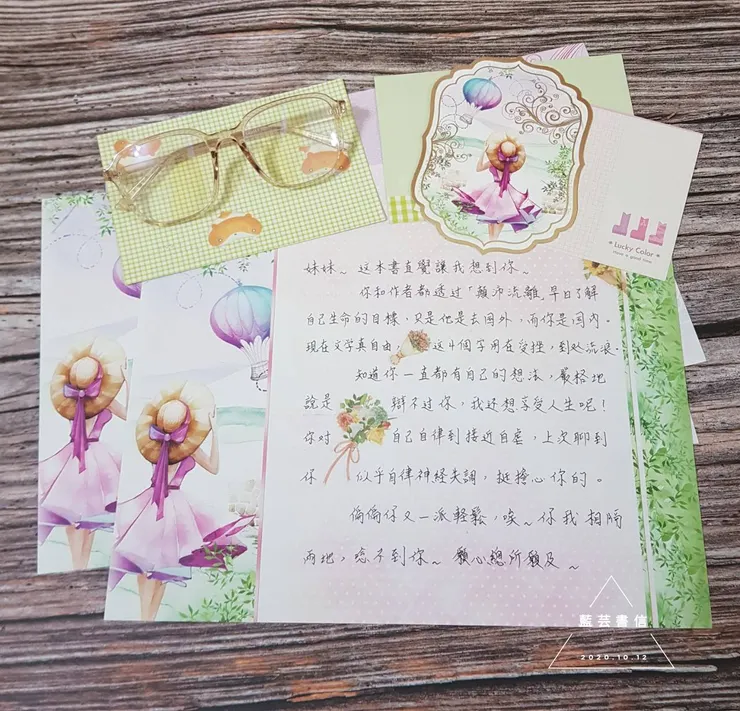 Lucky Color
Have a good time
妹妹～這本書直覺讓我想到你～
你和作者都透過「顛沛流離」早日了解
自己生命的目標，只是他是去國外，而你是國內。
現在文學真自由，這4個字用在受挫，到處流浪。
知道你一直都有自己的想法，嚴格地
說是 辯不過你，我還想享受人生呢！
你對 自己自律到接近自虐，上次聊到
你 似乎自律神經失調，挺擔心你的。
偏偏你又一派輕鬆，唉～你我相隔
兩地，唸不到你～ 願心總所願及～
藍芸書信
2020.10.12